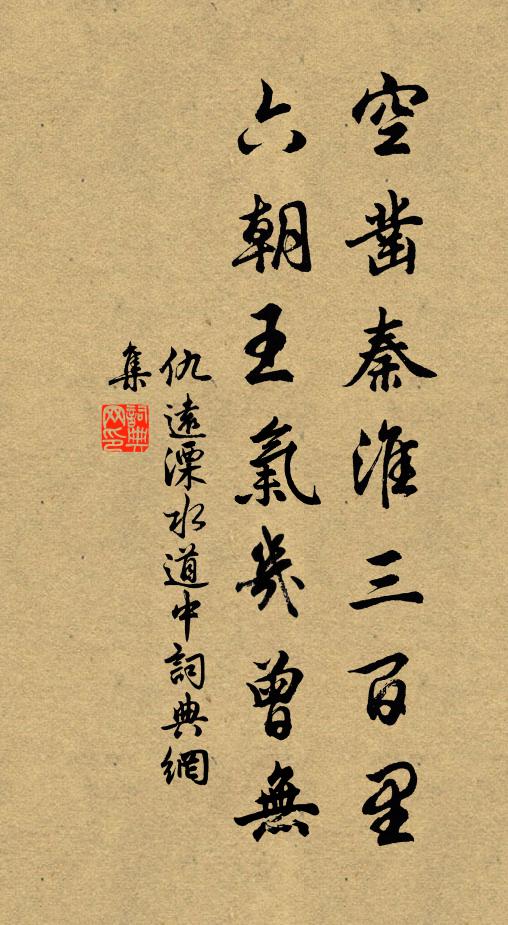 空鑿秦淮三百里
六朝王氣幾曾無
仇遠溧水道中詞典網
集
詞典网印